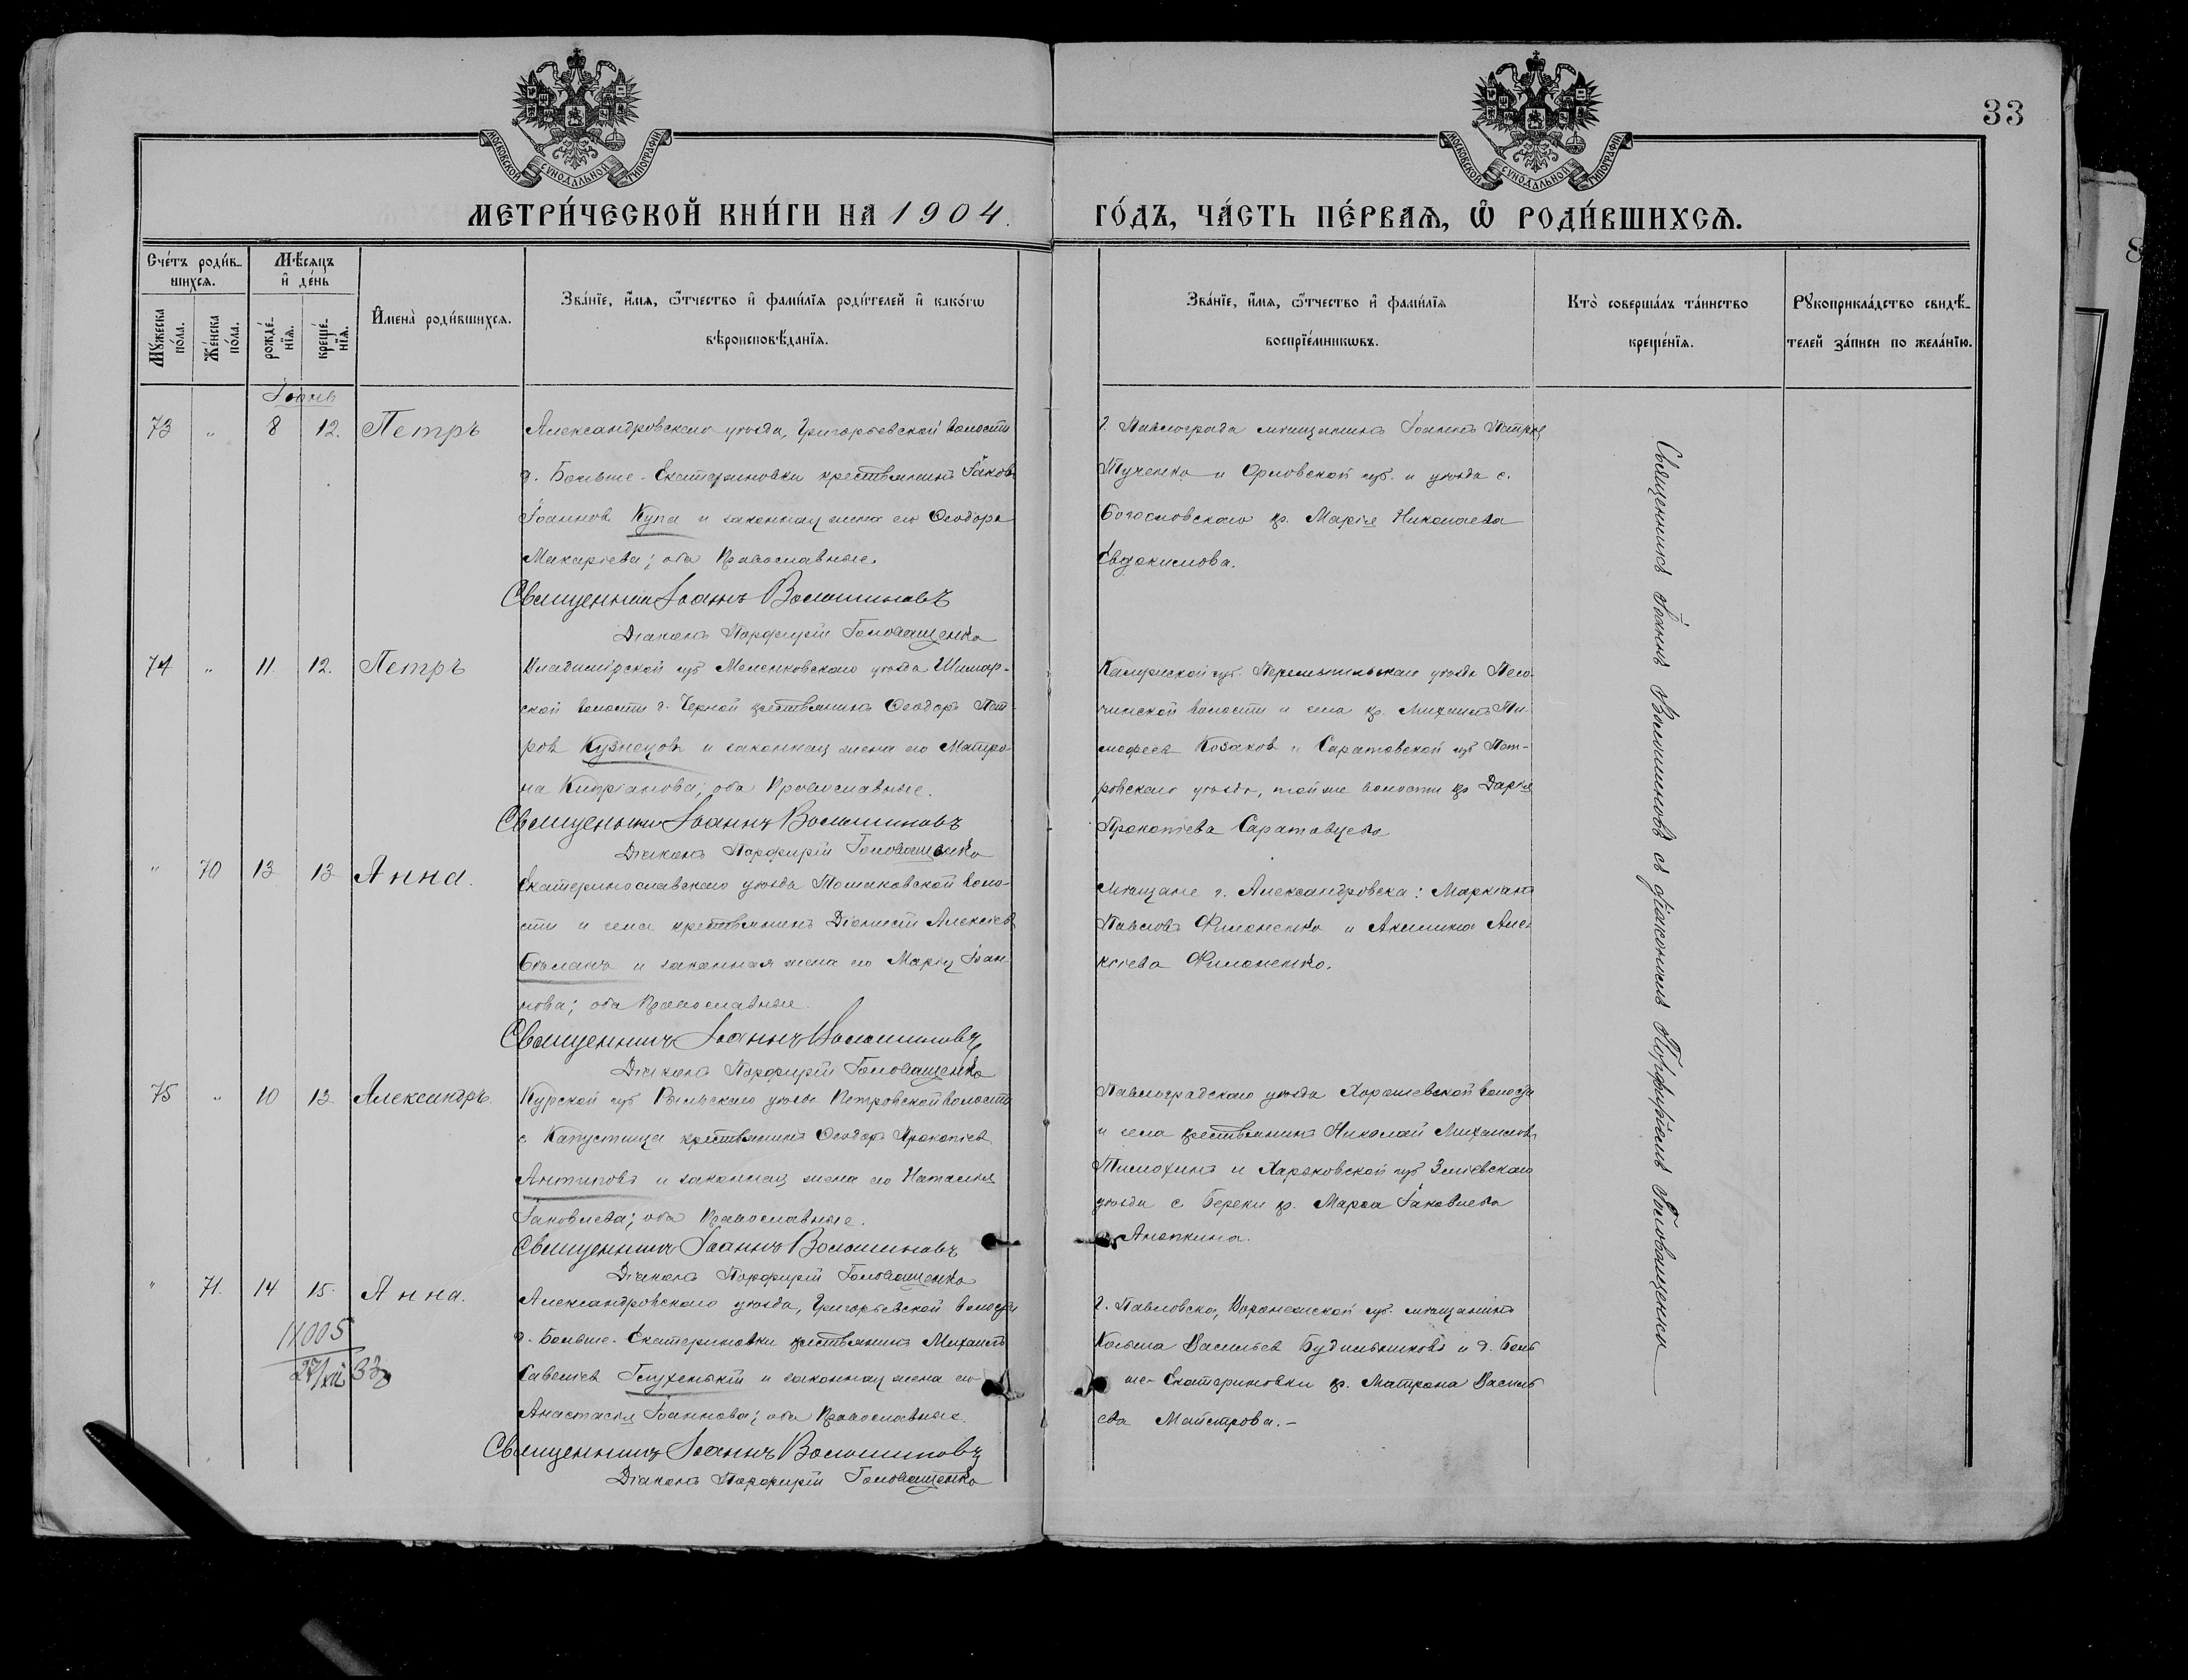 33
МОСКОВСКОЙ СУНОДАЛЬНОЙ ТИПОГРАФІИ
МОСКОВСКОЙ СУНОДАЛЬНОЙ ТИПОГРАФІИ
МЕТРИ́ЧЕСКОЙ КНИ́ГИ НА 1904.
ГО́ДЪ, ЧА́СТЬ ПЕ́РВАѦ, Ѡ҆ РОДИ́ВШИХСѦ.
Сче́тъ роди́в-
шихсѧ.
Мѣ́сѧцъ
и҆ де́нь
Мꙋ́жеска по́ла.
Же́нска по́ла.
рожде́-
нїѧ.
креще́-
нїѧ.
И҆мена̀ роди́вшихсѧ.
Зва́нїе, и҆́мѧ, ѻ҆́тчество и҆ фами́лїѧ роди́телей и҆ како́гѡ
вѣроисповѣ́данїѧ.
Зва́нїе, и҆́мѧ, ѻ҆́тчество и҆ фами́лїѧ
воспрїе́мникѡвъ.
Кто̀ соверша́лъ та́инство
креще́нїѧ.
Рꙋкоприкла́дство свидѣ́-
телей за́писи по жела́нїю.
Іюнь
73 " 8 12. Петръ
Александровскаго уѣзда, Григорьевской волости
д. Больше-Екатериновки крестьянинъ Іаковъ
Іоанновъ Купа и законная жена его Ѳеодора
Макаріева; оба Православные.
Священникъ Іоаннъ Волошиновъ
Діаконъ Порфирій Головащенко
г. Павлограда мѣщанинъ Іоаннъ Петровъ
Тученко и Орловской губ. и уѣзда с.
Богословскаго кр. Марія Николаева
Евдокимова.
74 " 11. 12. Петръ
Владимірской губ Меленковскаго уѣзда Шимор-
ской волости д. Черной крестьянинъ Ѳеодоръ Пет-
ровъ Кузнецовъ и законная жена его Матро-
на Кипріанова; оба Православные.
Священникъ Іоаннъ Волошиновъ
Діаконъ Порфирій Головащенко
Калужской губ. Перемышльскаго уѣзда Песо-
чинской волости и села кр. Михаилъ Ти-
мофеев Козаков и Саратовской губ Пет-
ровскаго уѣзда, той же волости кр Дарія
Прокопіева Саратовцева
" 70 13 13 Анна.
Екатеринославскаго уѣзда Томаковской воло-
сти и села крестьянинъ Діонисій Алексіевъ
и законная жена его Марія Іоан-
нова; оба Православные.
Священникъ Іоаннъ Волошиновъ
Діаконъ Порфирій Головащенко
Мѣщане г. Александровска: Маркіанъ
Павловъ Филоненко и Акилина Але-
ксіева Филоненко.
75 " 10 13 Александръ.
Курской губ Рыльскаго уѣзда Петровской волости
с Капустица крестьянинъ Ѳеодоръ Прокопіевъ
Антиповъ и законная жена его Наталія
Іаковлева; оба Православные.
Священникъ Іоаннъ Волошиновъ
Діаконъ Порфирій Головащенко
Павлоградскаго уѣзда Хорошевской волости
и села крестьянинъ Николай Михаиловъ
Тимохинъ и Харьковской губ Зміевскаго
уѣзда с Береки кр. Марѳа Іаковлева
Анопкина.
" 71. 14 15. Анна.
Александровскаго уѣзда, Григорьевской волости
д. Больше-Екатериновки крестьянинъ Михаилъ
Савеліевъ Глухенькій и законная жена его
Анастасія Іоаннова; оба Православные.
Священникъ Іоаннъ Волошиновъ
Діаконъ Порфирій Головащенко
г. Павловска, Воронежской губ. мѣщанинъ
Косьма Васильев Будильниковъ и д. Боль
ше-Екатериновки кр. Матрона Василь
ева Майстрова.-
11005
27/XII 33
Священникъ Іоаннъ Волошиновъ съ діакономъ Порфиріемъ Головащенко